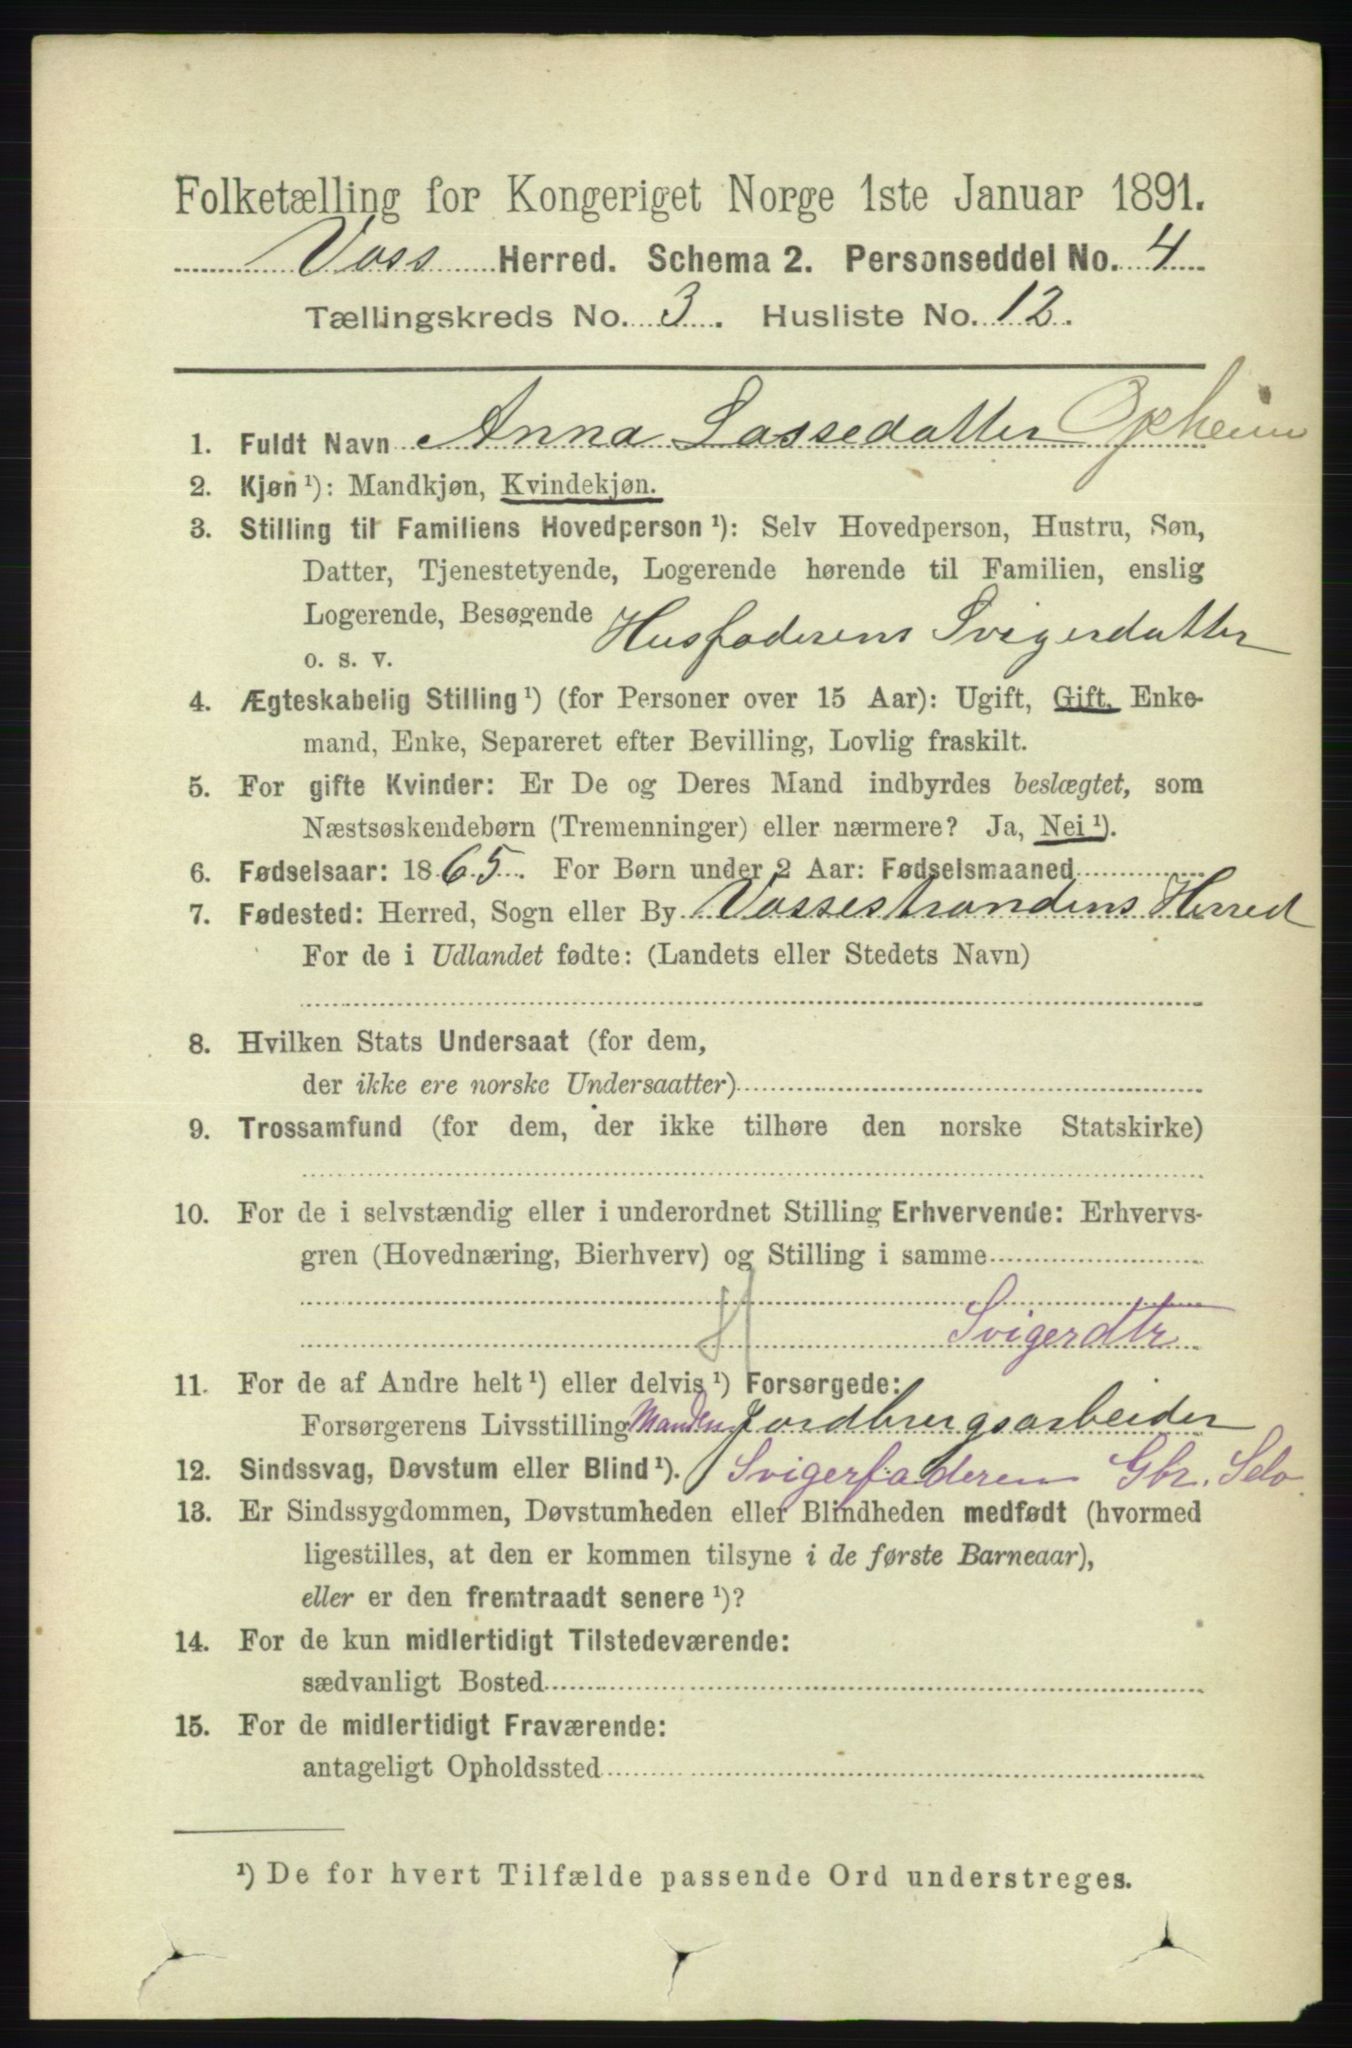 Folketælling for Kongeriget Norge 1ste Januar 1891.
Voss Herred. Schema 2. Personseddel No. 4
Tællingskreds No. 3. Husliste No. 12.
1. Fuldt Navn Anna Lassedatter Opheim
2. Kjøn ¹): Mandkjøn, Kvindekjøn.
3. Stilling til Familiens Hovedperson ¹): Selv Hovedperson, Hustru, Søn,
Datter, Tjenestetyende, Logerende hørende til Familien, enslig
Logerende, Besøgende
o. s. v. Husfaderens Svigerdatter
4. Ægteskabelig Stilling ¹) (for Personer over 15 Aar): Ugift, Gift, Enke-
mand, Enke, Separeret efter Bevilling, Lovlig fraskilt.
5. For gifte Kvinder: Er De og Deres Mand indbyrdes beslægtet, som
Næstsøskendebørn (Tremenninger) eller nærmere? Ja, Nei ¹).
6. Fødselsaar: 1865. For Børn under 2 Aar: Fødselsmaaned
7. Fødested: Herred, Sogn eller By Vossestrandens Herred
For de i Udlandet fødte: (Landets eller Stedets Navn)
8. Hvilken Stats Undersaat (for dem,
der ikke ere norske Undersaatter)
9. Trossamfund (for dem, der ikke tilhøre den norske Statskirke)
10. For de i selvstændig eller i underordnet Stilling Erhvervende: Erhvervs-
gren (Hovednæring, Bierhverv) og Stilling i samme
Svigerdtr
11. For de af Andre helt ¹) eller delvis ¹) Forsørgede:
Forsørgerens Livsstilling Manden Jordbrugsarbeider
12. Sindssvag, Døvstum eller Blind ¹). Svigerfaderen Gbr. Selv
13. Er Sindssygdommen, Døvstumheden eller Blindheden medfødt (hvormed
ligestilles, at den er kommen tilsyne i de første Barneaar),
eller er den fremtraadt senere ¹)?
14. For de kun midlertidigt Tilstedeværende:
sædvanligt Bosted
15. For de midlertidigt Fraværende:
antageligt Opholdssted
¹) De for hvert Tilfælde passende Ord understreges.